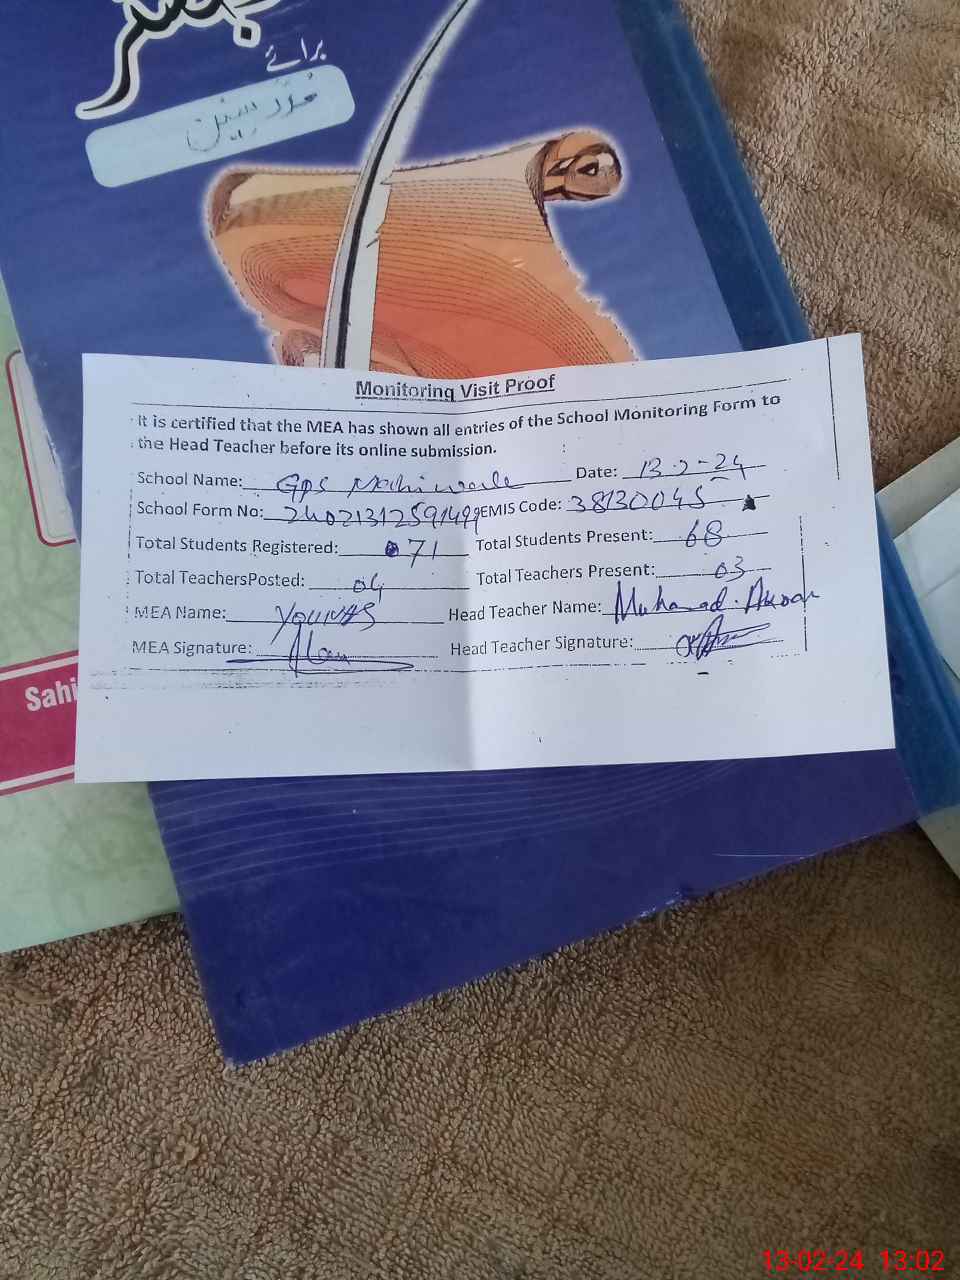 برائے
مدرسین
Monitoring Visit Proof
It is certified that the MEA has shown all entries of the School Monitoring Form to
the Head Teacher before its online submission.
School Name: GPS Machiwala Date: 13-2-24
School Form No: 2402131259149 EMIS Code: 38130045
Total Students Registered: 71 Total Students Present: 68
Total TeachersPosted: 04 Total Teachers Present: 03
MEA Name: YOUNAS Head Teacher Name: Muhamad
MEA Signature: Head Teacher Signature:
Sahi
13-02-24 13:02